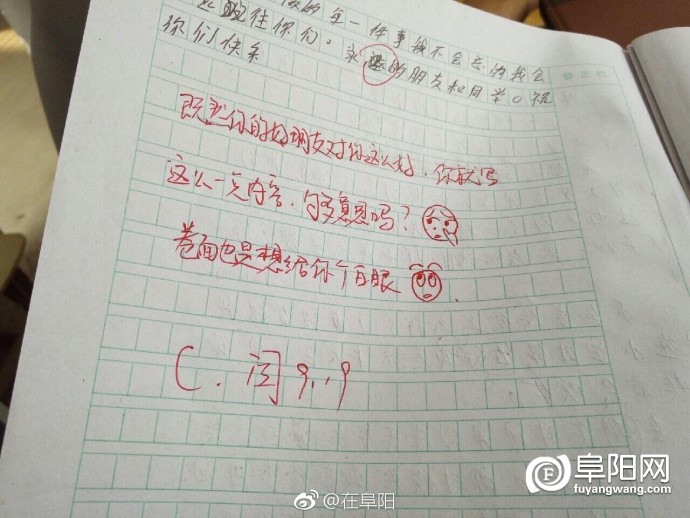 住你们的每一件事我不会忘的我会
记住你们，永远的朋友和同学。祝
你们快乐
既然你的好朋友对你这么好，你就写
这么一点内容，够意思吗？
卷面也是想给你个白眼
C. 闫 9.19
阜阳网
fuyangwang.com
@在阜阳